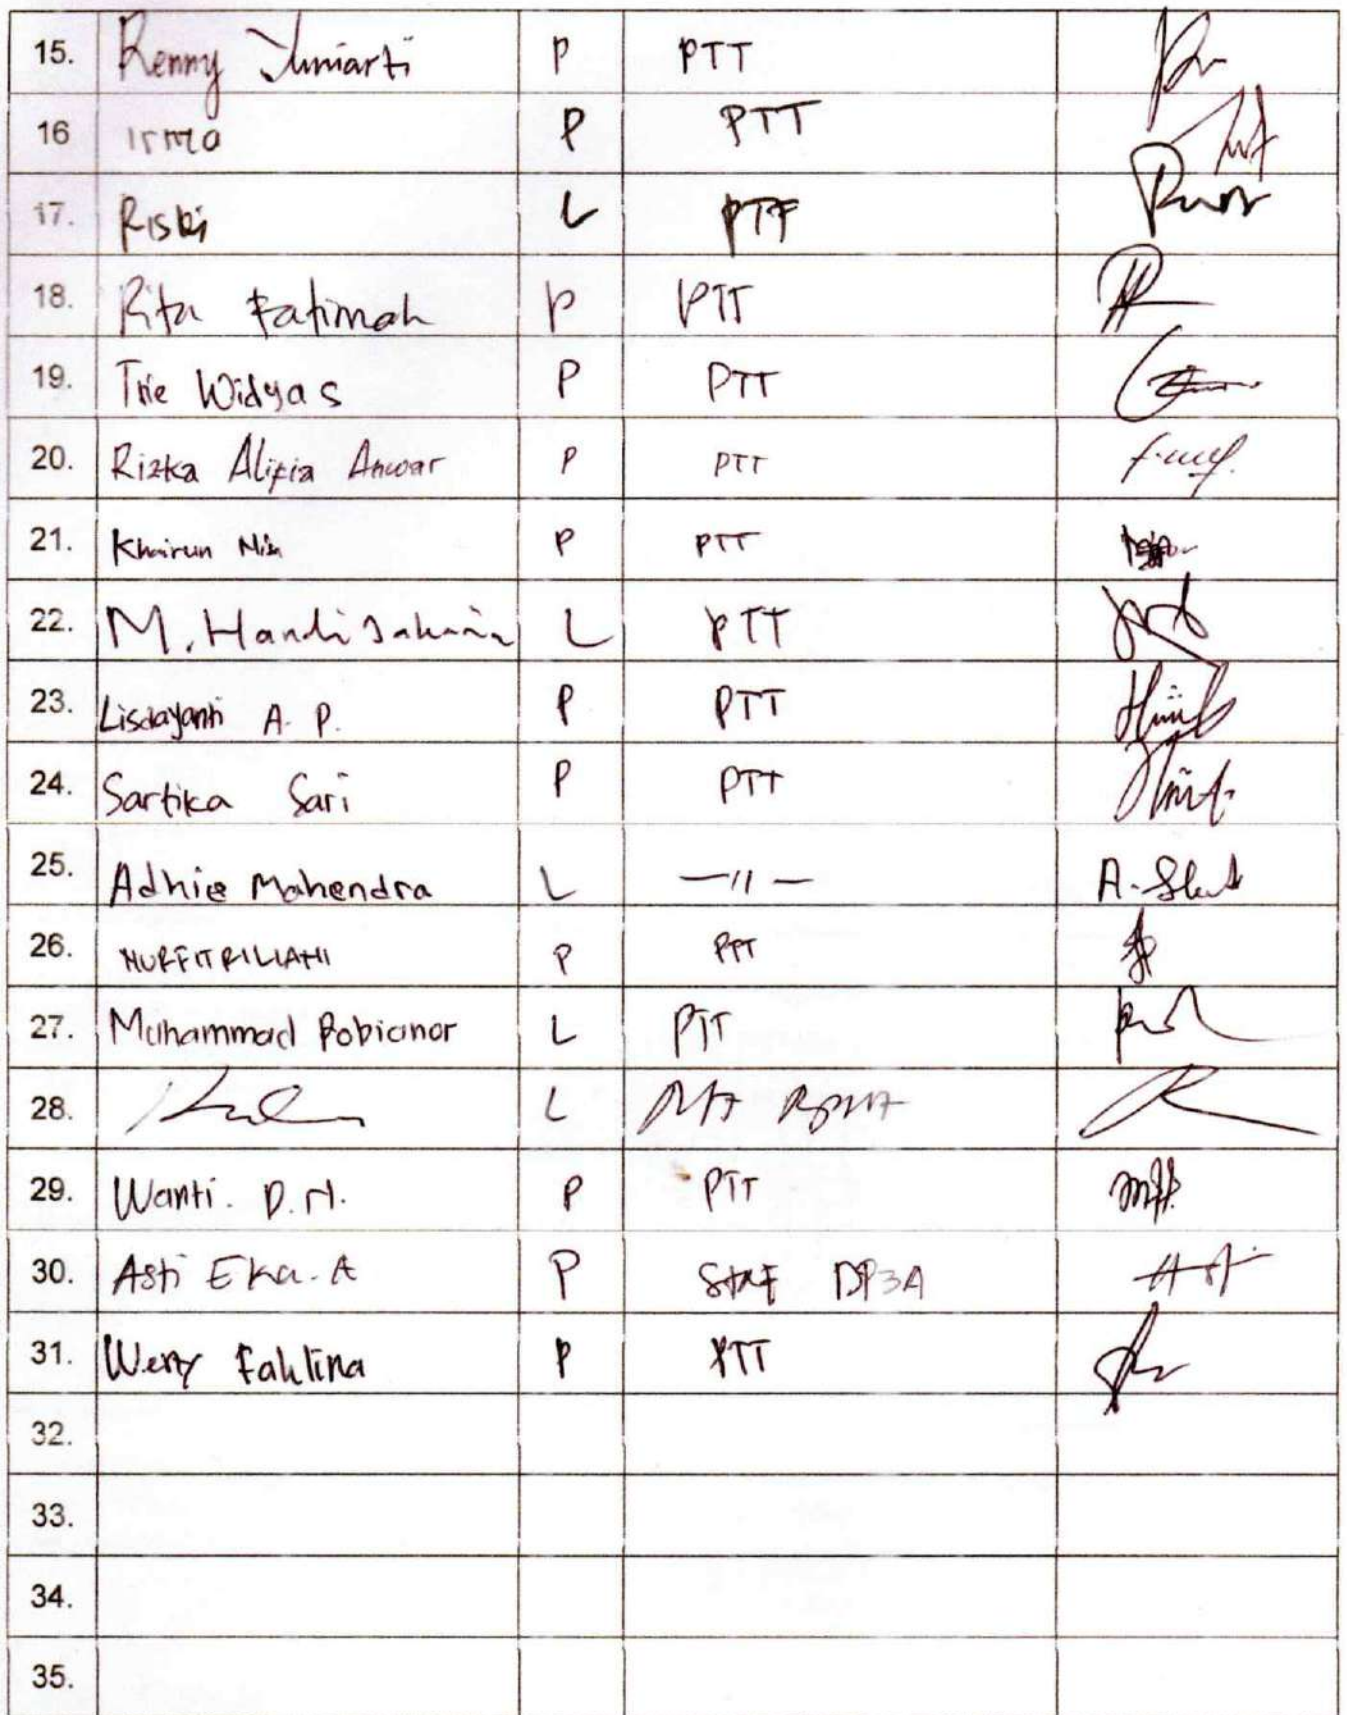 15. Renny Yuniarti P PTT
16 Irma P PTT
17. Riski L PTT
18. Rita Fatimah P PTT
19. Trie Widya S P PTT
20. Rizka Alifia Anwar P PTT
21. Khairun Nisa P PTT
22. M. Handi L PTT
23. Lisdayanti A. P. P PTT
24. Sartika Sari P PTT
25. Adhie Mahendra L —11—
26. NURFITRILIANI P PTT
27. Muhammad Robianor L PTT
28. L
29. Wanti. D. N. P PTT
30. Asti Eka. A P Staf DP3A
31. Weny Fahlina P PTT
32.
33.
34.
35.